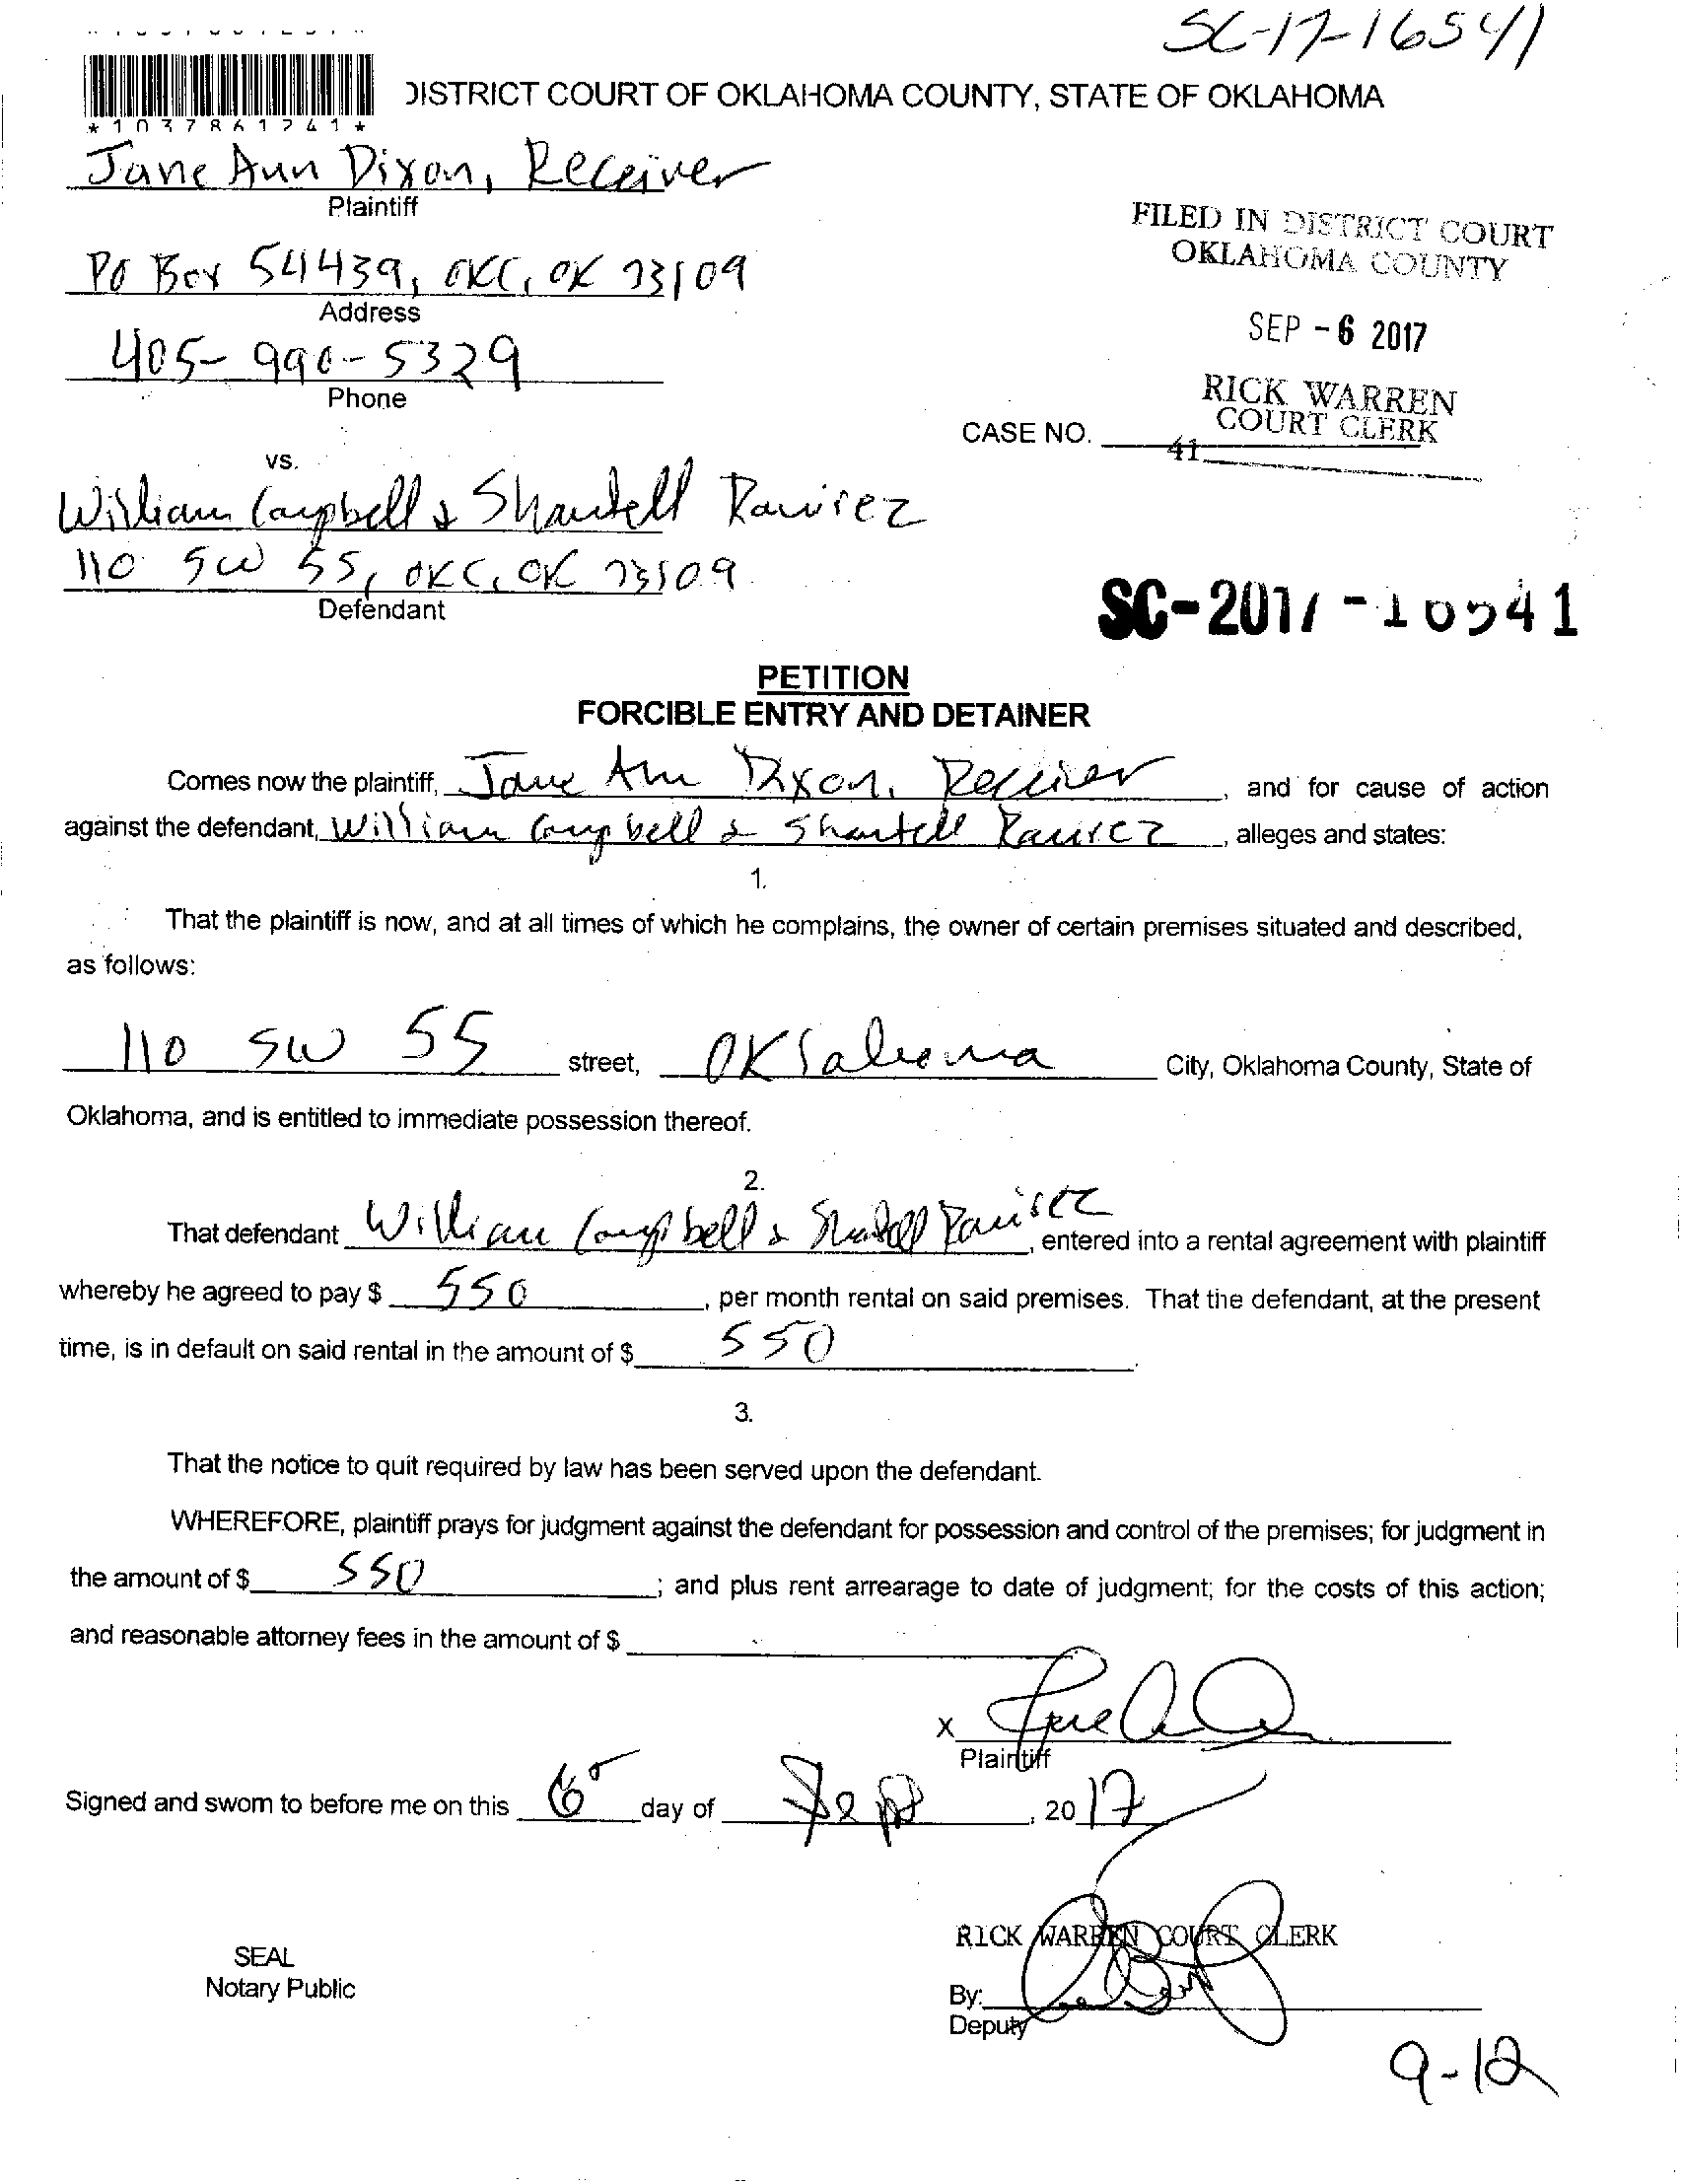 SC-17-16541
DISTRICT COURT OF OKLAHOMA COUNTY, STATE OF OKLAHOMA
*1037861241*
Jane Ann Dixon, Receiver
Plaintiff
FILED IN DISTRICT COURT
OKLAHOMA COUNTY
PO Box 54439, OKC, OK 73109
Address
SEP -6 2017
405-990-5329
Phone
RICK WARREN
COURT CLERK
CASE NO.
41
vs.
William Campbell & Shantell Ramirez
110 SW 55, OKC, OK 73109
Defendant
SC-2017-16541
PETITION
FORCIBLE ENTRY AND DETAINER
Comes now the plaintiff, Jane Ann Dixon, Receiver, and for cause of action
against the defendant, William Campbell & Shantell Ramirez, alleges and states:
1.
That the plaintiff is now, and at all times of which he complains, the owner of certain premises situated and described,
as follows:
110 SW 55 street, Oklahoma City, Oklahoma County, State of
Oklahoma, and is entitled to immediate possession thereof.
2.
That defendant William Campbell & Shantell Ramirez, entered into a rental agreement with plaintiff
whereby he agreed to pay $ 550, per month rental on said premises. That the defendant, at the present
time, is in default on said rental in the amount of $ 550.
3.
That the notice to quit required by law has been served upon the defendant.
WHEREFORE, plaintiff prays for judgment against the defendant for possession and control of the premises; for judgment in
the amount of $ 550; and plus rent arrearage to date of judgment; for the costs of this action;
and reasonable attorney fees in the amount of $
X
Plaintiff
Signed and sworn to before me on this 6 day of Sept, 2017
RICK WARREN COURT CLERK
SEAL
Notary Public
By:
Deputy
9-12